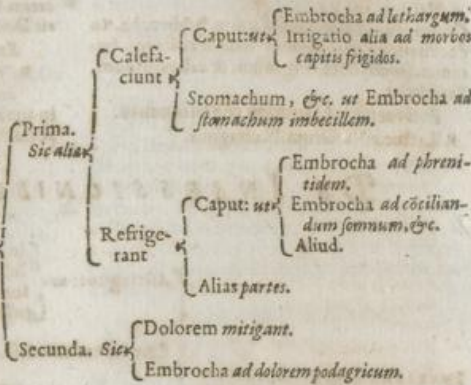 Prima.
Sic alia
Calefa-
ciunt
Caput: ut
Embrocha ad lethargum.
Irrigatio alia ad morbos
capitis frigidos.
Stomachum, &c. ut Embrocha ad
stomachum imbecillem.
Refrige-
rant
Caput: ut
Embrocha ad phreni-
tidem.
Embrocha ad cōcilian-
dum somnum, &c.
Aliud.
Alias partes.
Secunda. Sic
Dolorem mitigant.
Embrocha ad dolorem podagricum.